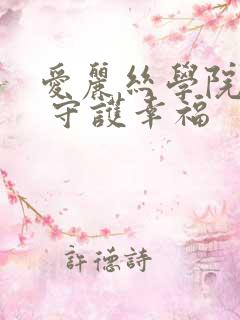 愛麗絲學院
守護幸福
許德詩